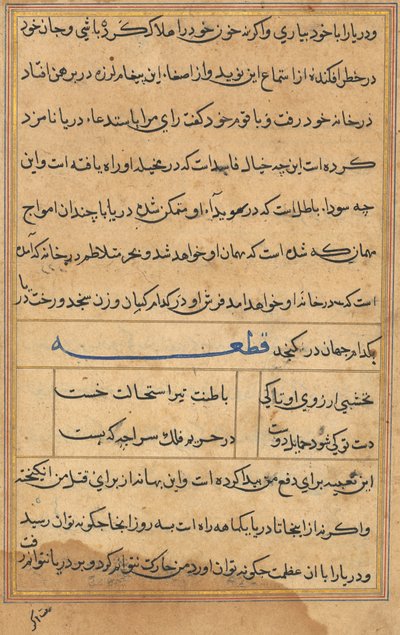 و دریا را با خود بیاری و اگرنه خون خود را هلاک کرده باشی و جان خود
در خطر افکنده از استماع این نوید و از اصغاء این پیغام لرزه در برهمن افتاد
در خانه خود رفت و با قوم خود گفت رای مرا باستدعاء دریا نامزد
کرده است این چه خیال فاسد است که در مخیله او راه یافته است و این
چه سوداء باطل است که در سویداء او متمکن شده دریا با چندان امواج
مهمان که شده است که مهمان او خواهد شد و بحر متلاطم در خانه که آمده
است که در خانه او خواهد آمد فرش او در کدام کپان وزن سنجد و رخت دریا
بکدام جهان در گنجد قطعه
نخشبی آرزوی او تا کی
باطنت تیر استحالت خست
دست تو کی شود حمایل دوست
در حریر فلک سراچه که بست
این تعبیه برای دفع من پیدا کرده است و این بهانه از برای قتل من انگیخته
و اگرنه از اینجا تا دریا یکماهه راه است بسه روز آنجا چگونه توان رسید
و دریا را با آن عظمت چگونه توان آورد من حرکت نتوانم کرد و بر دریا نتوانم رفت